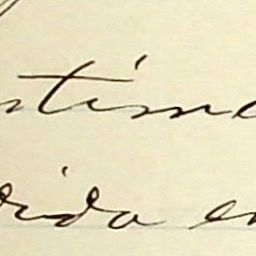 stime
dida en